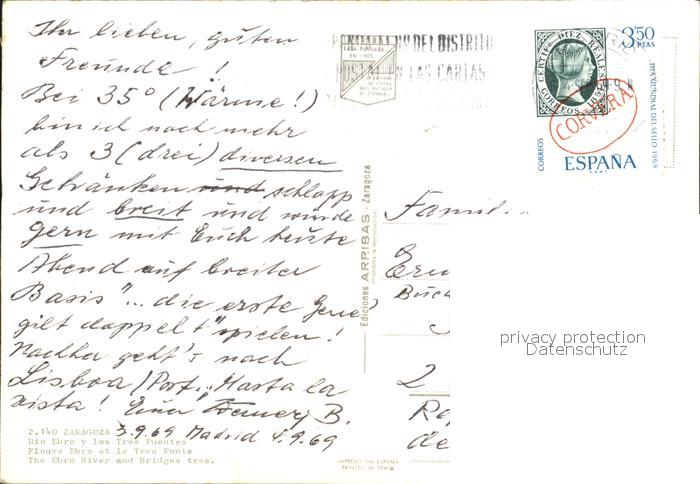 Ihr lieben, guten
Freunde!
Bei 35° (Wärme!)
bin ich nach mehr
als 3 (drei) diversen
Getränken und schlapp
und breit und würde
gern mit Euch heute
Abend auf breiter
Basis "... die erste
gilt doppelt" spielen!
Nachher geht's nach
Lisboa/Port. "Hasta la
vista! Euer B.
3.9.69 Madrid 4.9.69
2.140 ZARAGOZA
Rio Ebro y los Tres Puentes
Fleuve Ebro et le Tres Ponts
The Ebro River and Bridges tres.
CASA FUNDADA
EN 1905
DE ESPAÑA
DEL DISTRITO
LAS CARTAS
Ediciones ARRIBAS - Zaragoza
IMPRESO EN ESPAÑA
PRINTED IN SPAIN
CERTIFDO DIEZ REALES
CORREOS 1850
3,50
PTAS
DIA MUNDIAL DEL SELLO 1969
CORVERA
CORREOS
ESPAÑA
Famil
Büch
2
de
privacy protection
Datenschutz